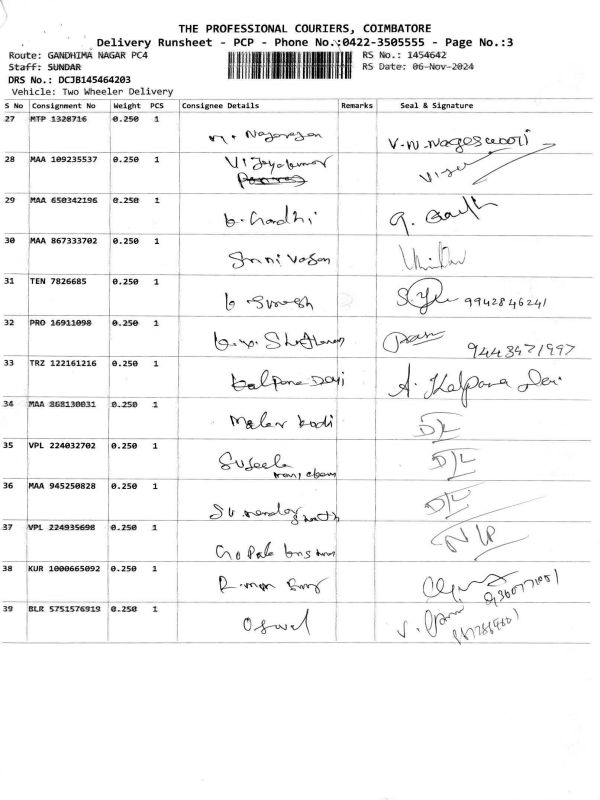 THE PROFESSIONAL COURIERS, COIMBATORE
Delivery Runsheet - PCP - Phone No.:0422-3505555 - Page No.:3
Route: GANDHIMA NAGAR PC4 RS No.: 1454642
Staff: SUNDAR RS Date: 06-Nov-2024
DRS No.: DCJB145464203
Vehicle: Two Wheeler Delivery
S No Consignment No Weight PCS Consignee Details Remarks Seal & Signature
27 MTP 1328716 0.250 1 Nagarajan V.N.Nageswari
28 MAA 109235537 0.250 1 Vijayakumar
29 MAA 650342196 0.250 1 Gandhi
30 MAA 867333702 0.250 1 Srinivasan
31 TEN 7826685 0.250 1 Suresh 9942846241
32 PRO 16911098 0.250 1 9443471997
33 TRZ 122161216 0.250 1 Kalpana Devi A. Kalpana Devi
34 MAA 868130031 0.250 1 Malar kodi D/L
35 VPL 224032702 0.250 1 Suseela D/L
36 MAA 945250828 0.250 1 D/L
37 VPL 224935698 0.250 1 N/P
38 KUR 1000665092 0.250 1
39 BLR 5751576919 0.250 1 Oswal